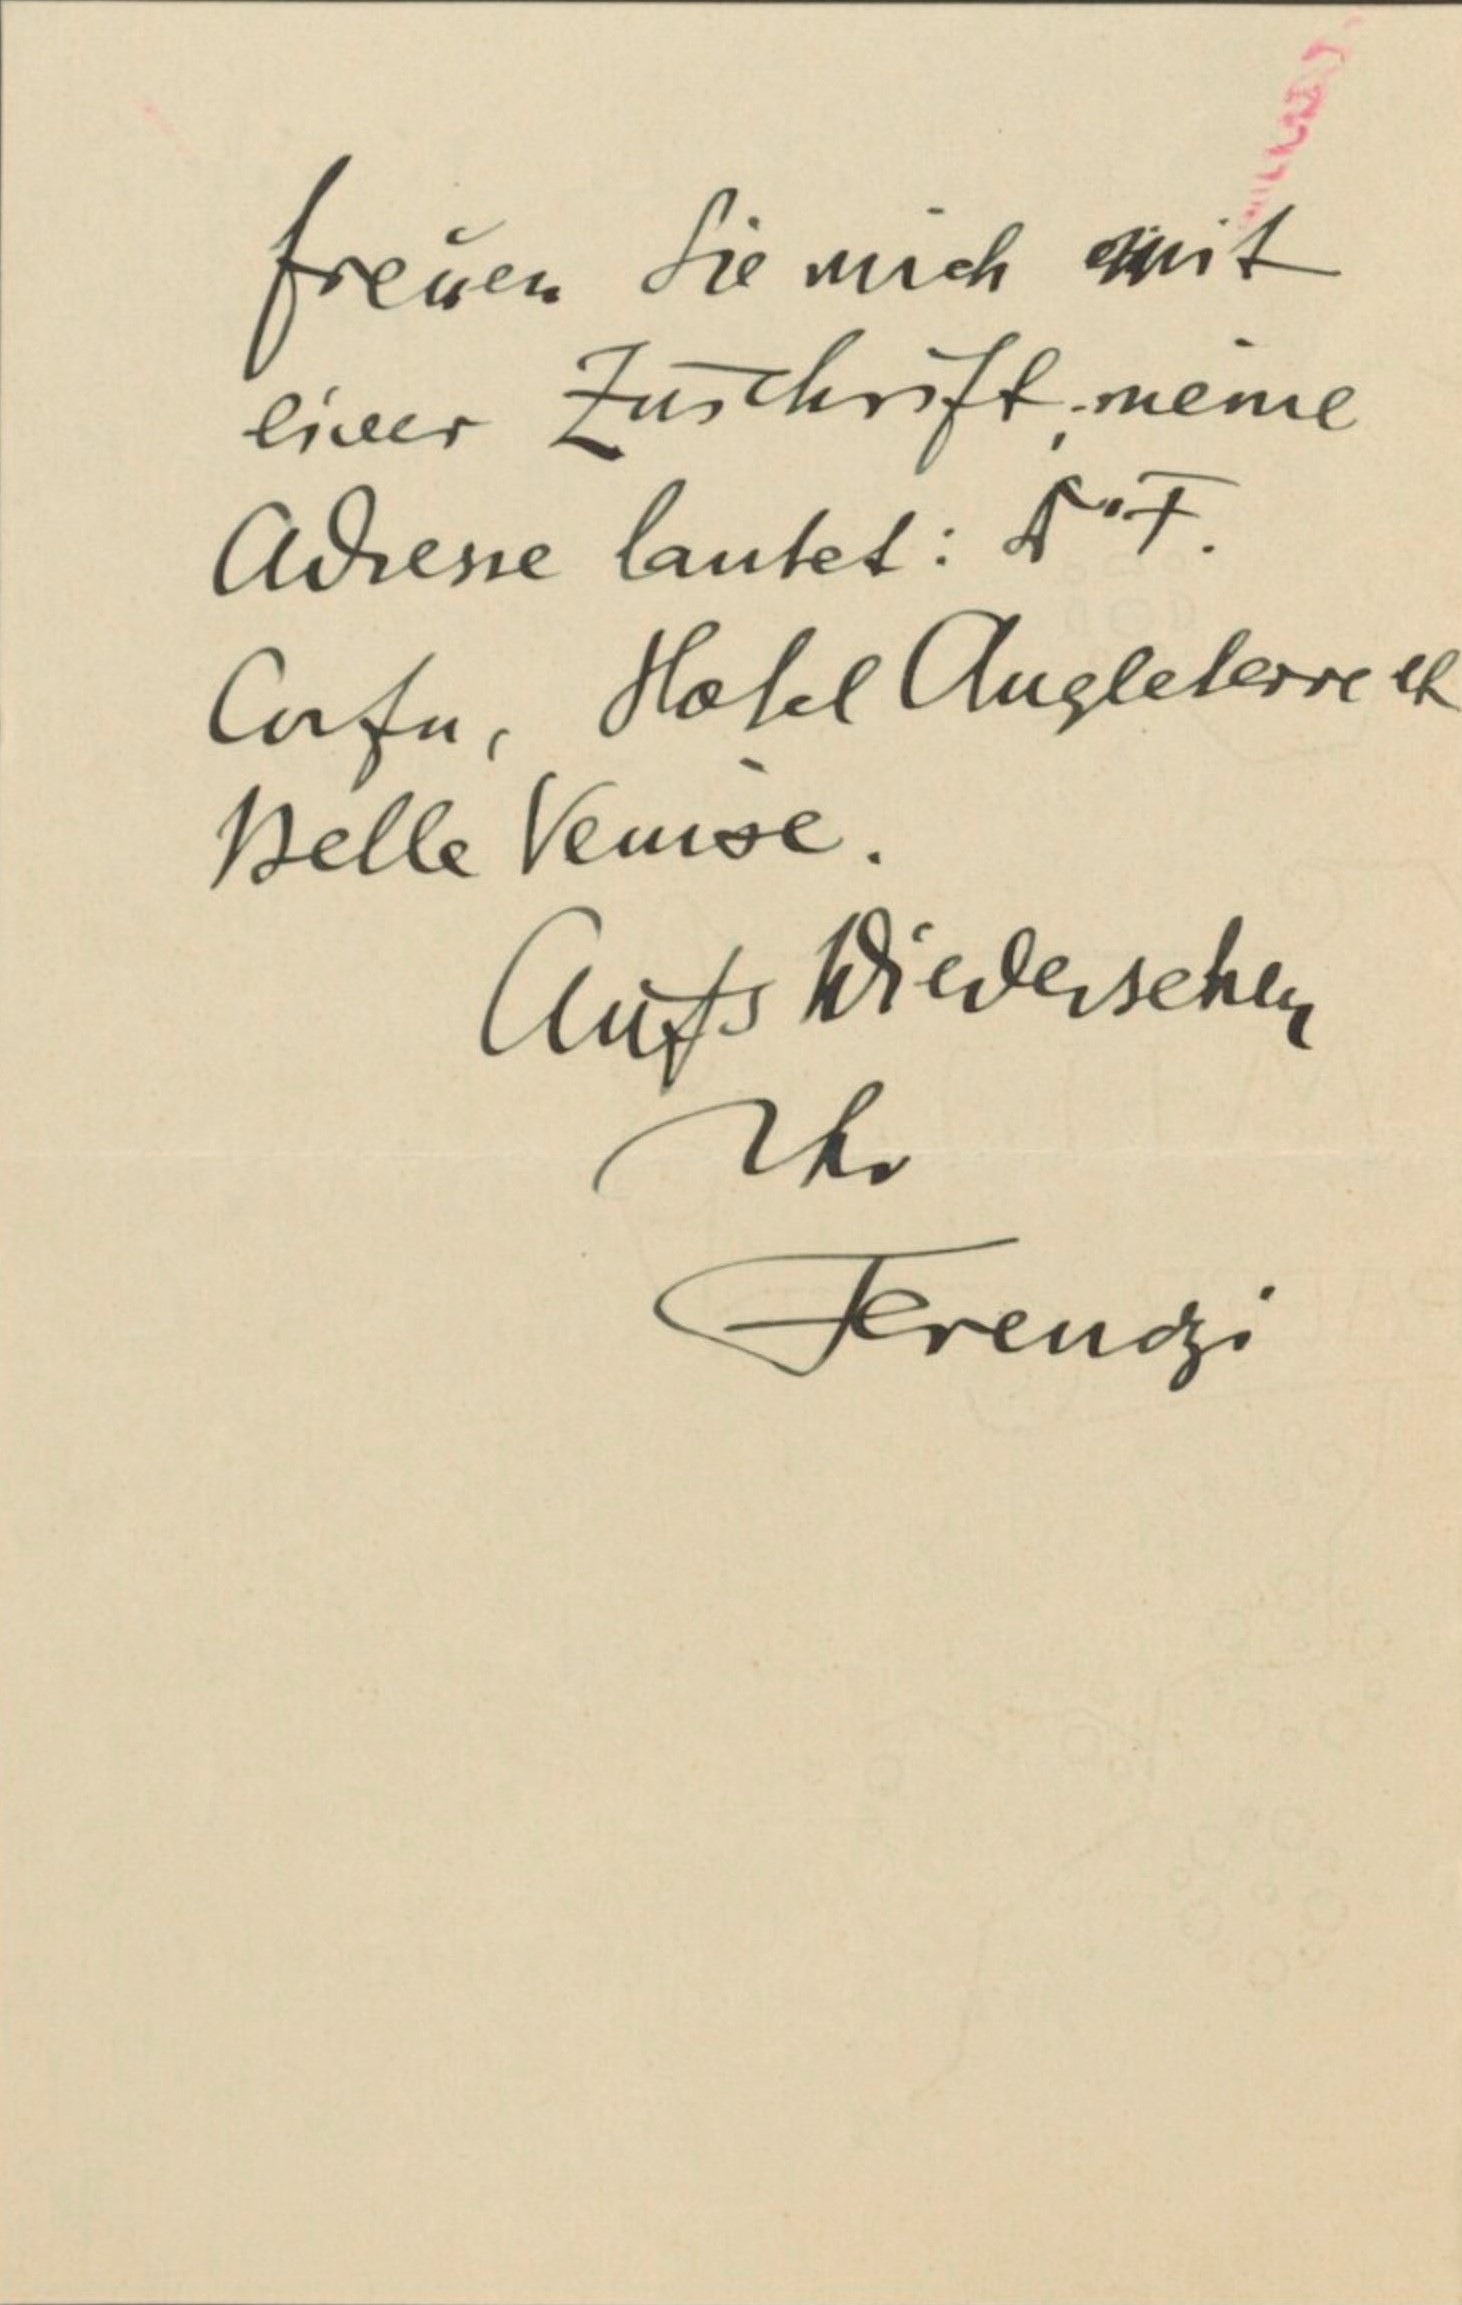 freuen Sie mich mit
einer Zuschrift, meine
Adresse lautet: Dr F.
Corfu, Hotel Angleterre et
Belle Venise.
Aufs Wiedersehen
Ihr
Ferenczi